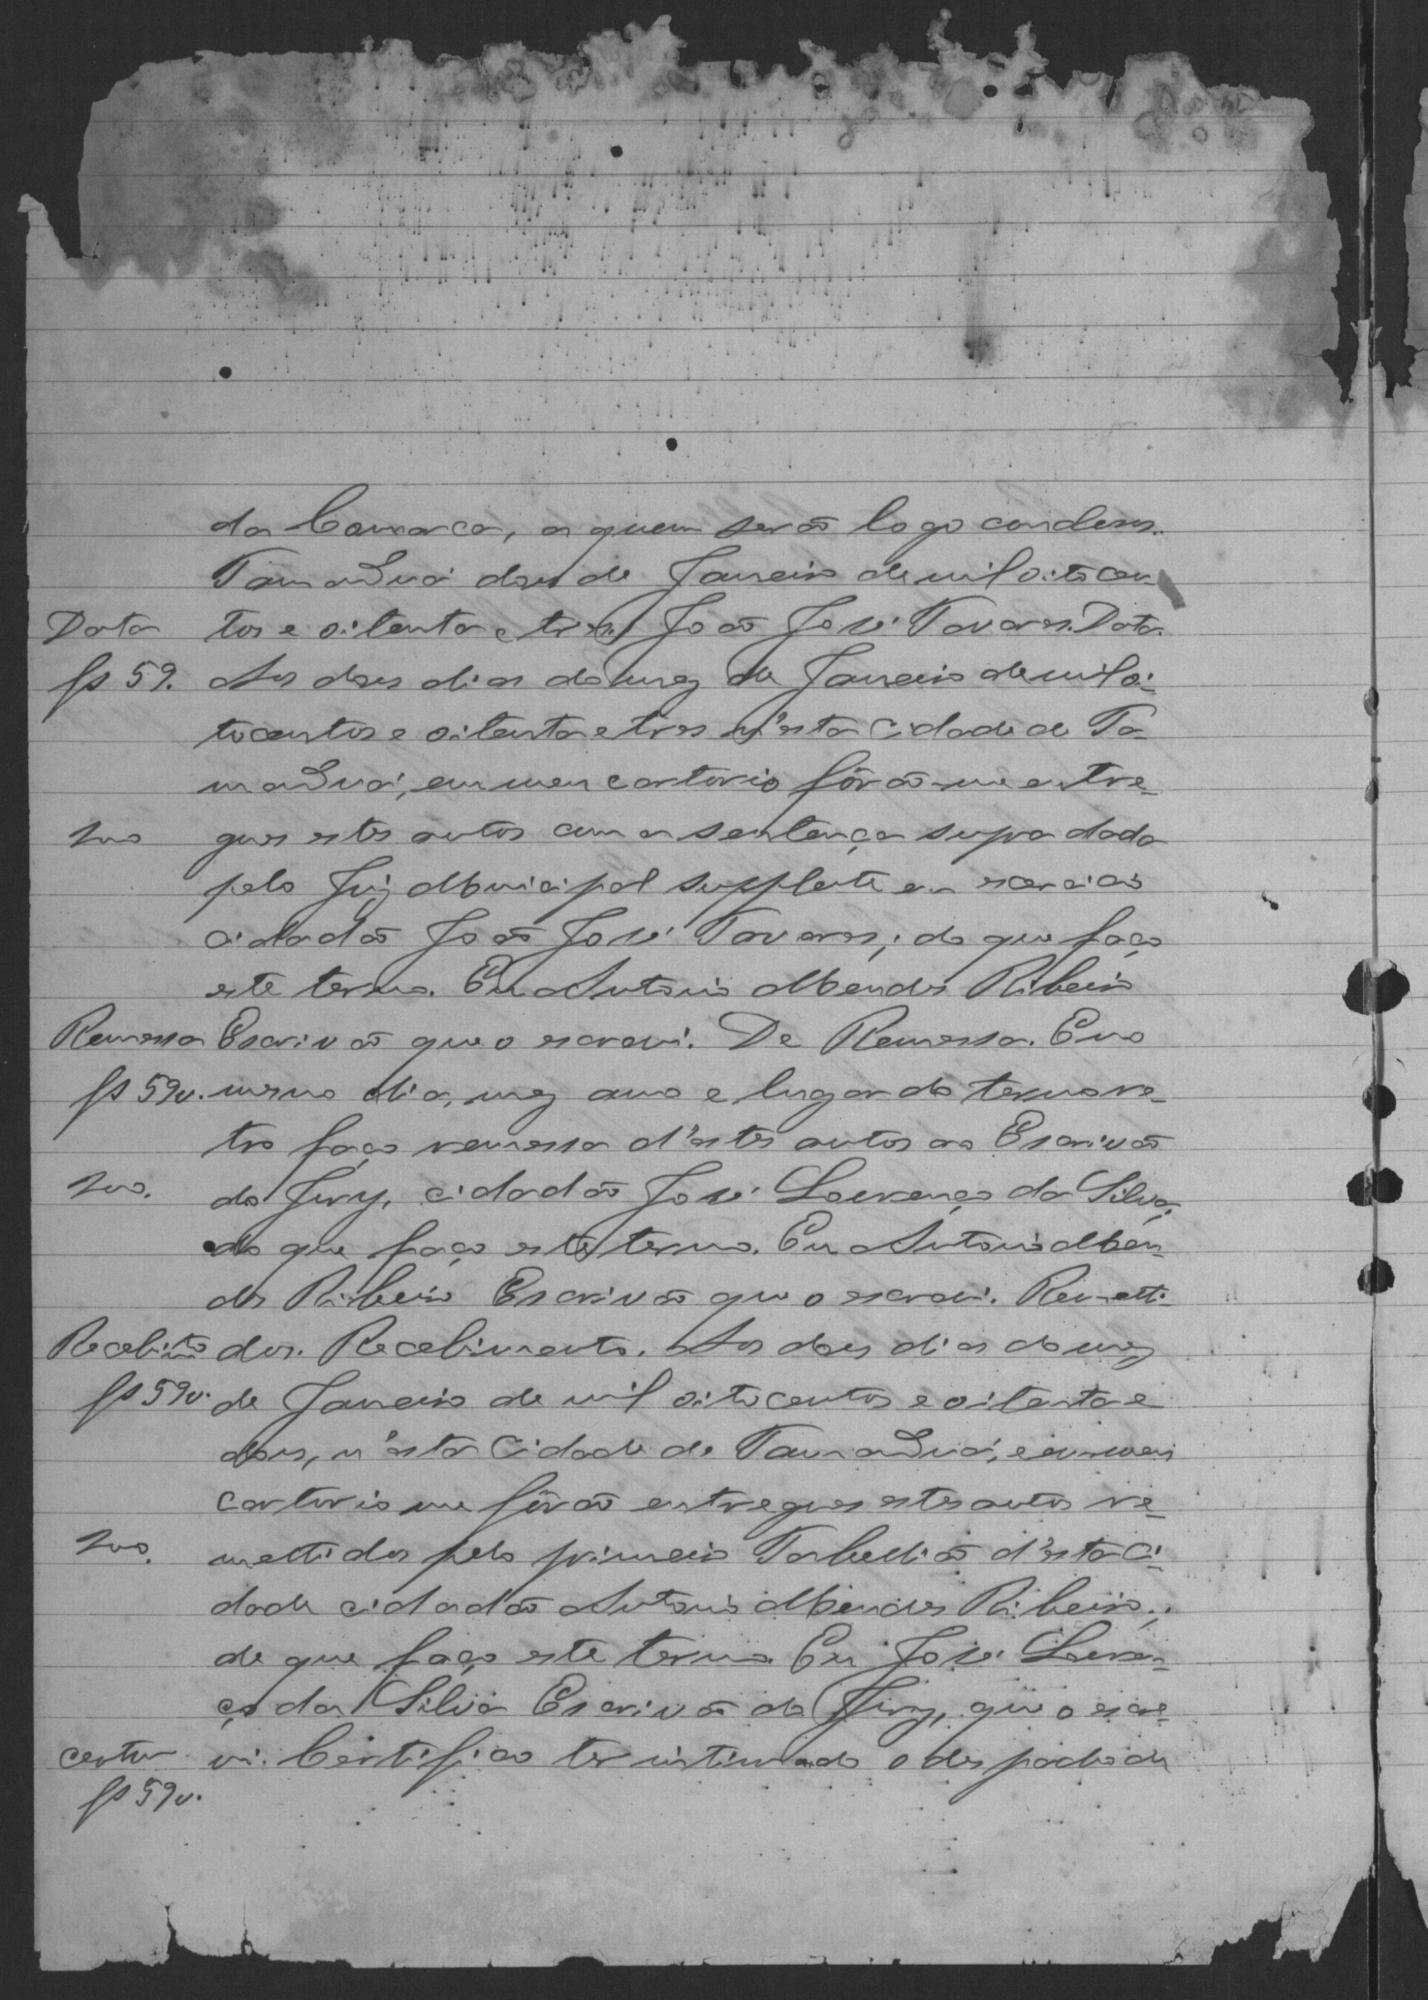 da Comarca, a quem serão logo conclusos.
Tamanduá dois de Janeiro de mil oitocen-
Data tos e oitenta e tres. João José Tavares. Data.
fs 59. Aos dois dias do mez de Janeiro de mil oi-
tocentos e oitenta e tres n'esta Cidade de Ta-
manduá, em meu cartorio fôrão-me entre-
gues estes autos com a sentença supra dada
pelo Juiz Municipal supplente em exercicio
cidadão João José Tavares; do que faço
este termo. Eu Antonio Mendes Ribeiro
Remessa Escrivão que o escrevi. De Remessa. E no
fs 59v. mesmo dia, mez anno e lugar do termo re-
tro faço remessa d'estes autos ao Escrivão
do Jury, cidadão José Lourenço da Silva,
do que faço este termo. Eu Antonio Men-
des Ribeiro Escrivão que o escrevi. Remetti-
Recebimto dos. Recebimento. Aos dois dias do mez
fs 59v. de Janeiro de mil oitocentos e oitenta e
dois, n'esta Cidade de Tamanduá, e em meu
cartorio me fôrão entregues estes autos re-
mettidos pelo primeiro Tabellião d'esta Ci-
dade cidadão Antonio Mendes Ribeiro;
de que faço este termo. Eu José Louren-
ço da Silva Escrivão do Jury, que o escre-
vi. Certifico ter intimado o despacho de
fs 59v.